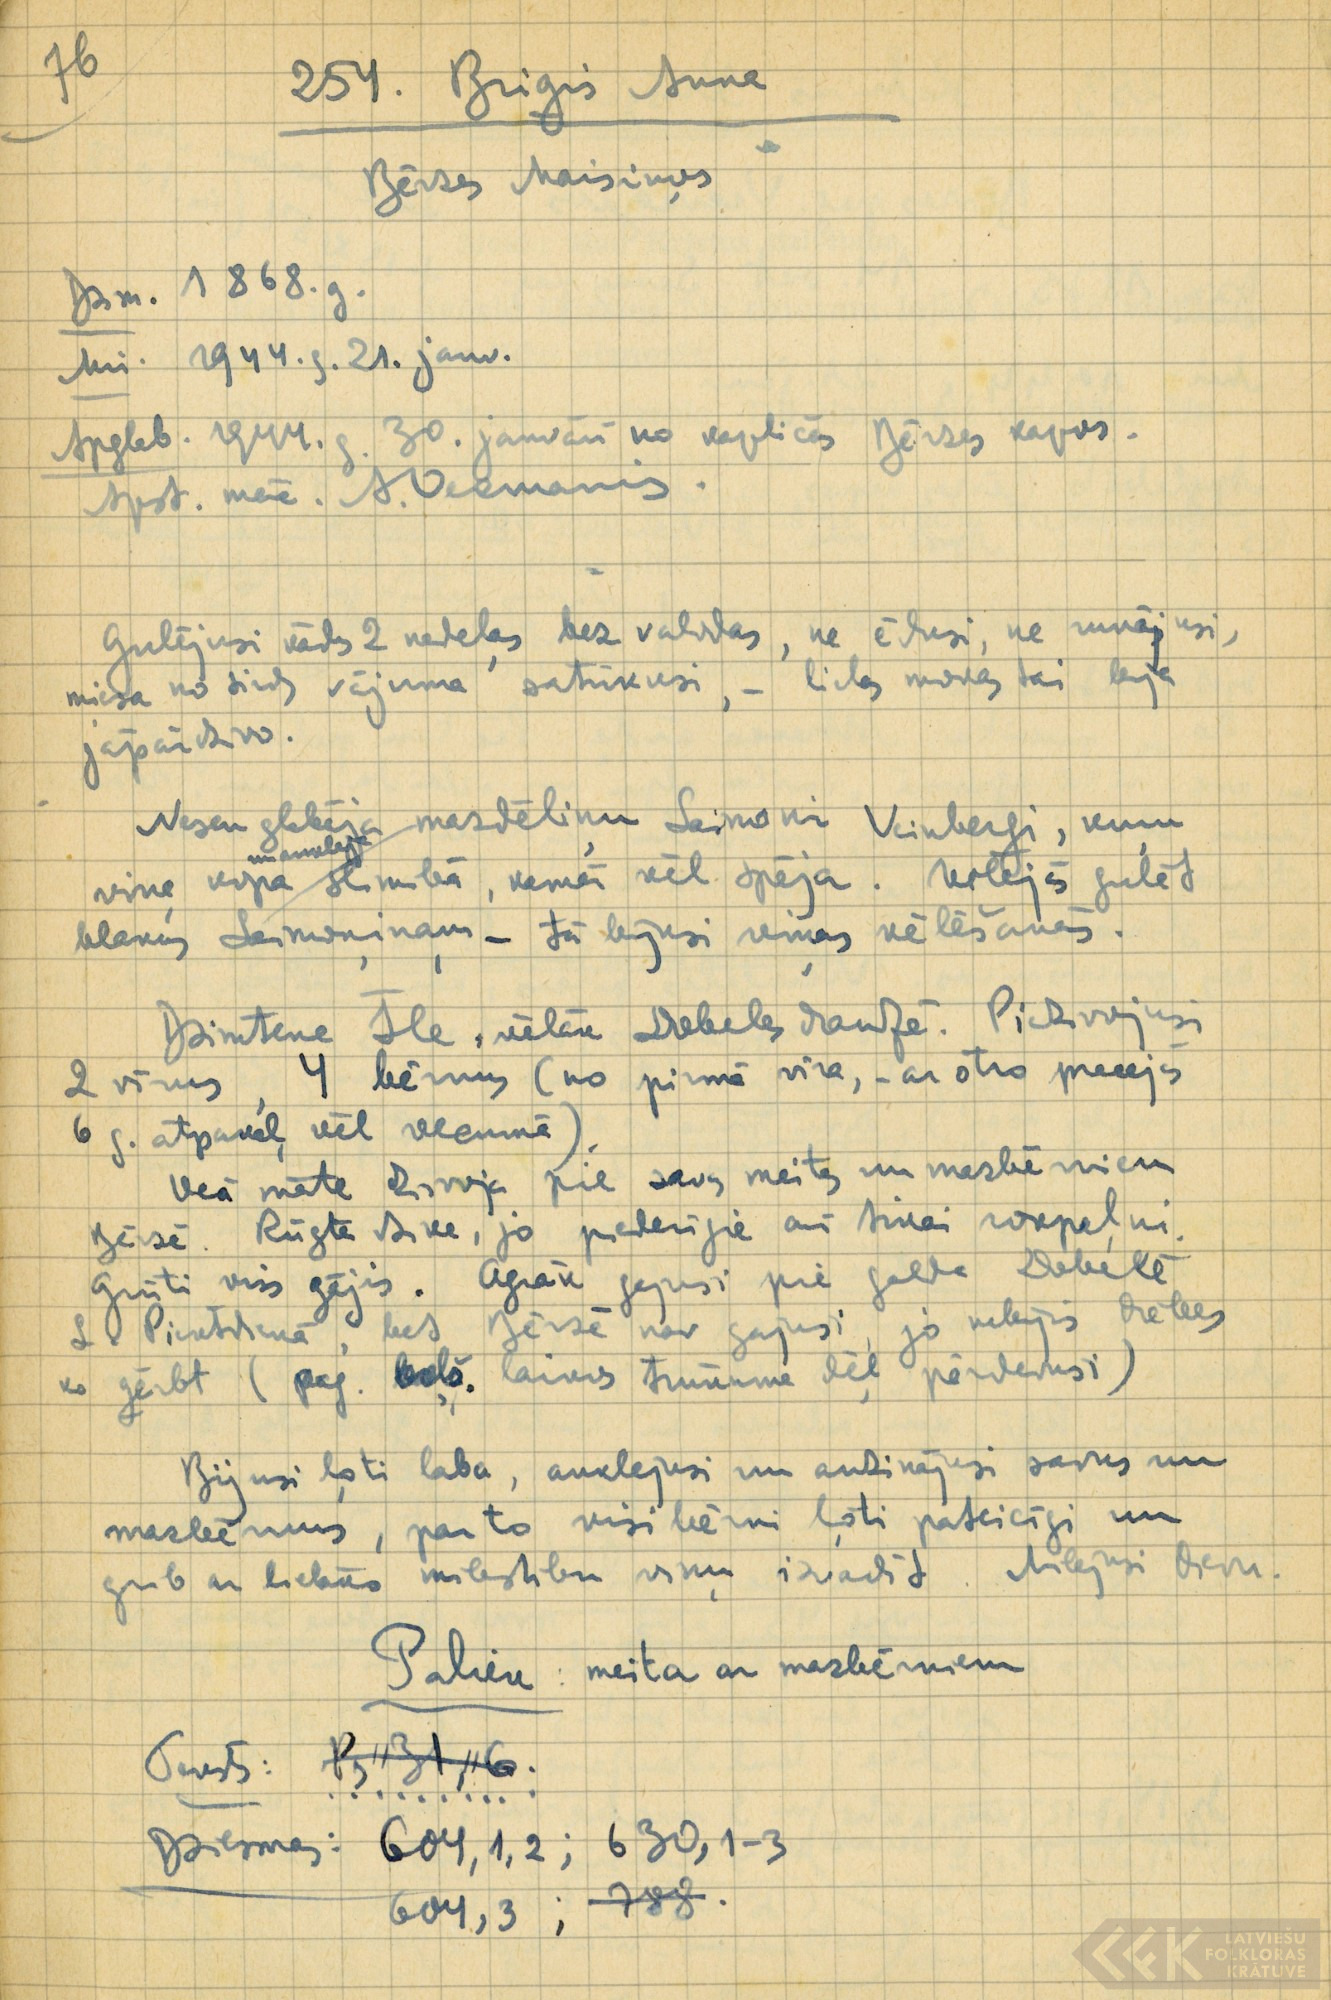 76
254. Briģis Anna
Bērzes Maisiņos
Dzim. 1868. g.
Mir. 1944. g. 21. janv.
Apglab. 1944. g. 30. janvārī no kapličas Bērzes kapos.
Apst. māc. A. Vecmanis.
Gulējusi kādas 2 nedeļas bez valodas, ne ēdusi, ne runājusi,
miesa no sirds vājuma satūkusi, – lielas mokas tai bija
jāpārdzīvo.
Nesen glabāja mazdēliņu Laimoni Veinbergi, kuŗu
un auklēja
viņa kopa slimībā, kamēr vēl spēja. Vēlējās gulēt
blakus Laimoņiņam – tā bijusi viņas vēlēšanās.
Dzimtene Īle, vēlāk Dobeles draudzē. Piedzīvojusi
2 vīrus, 4 bērnus (no pirmā vīra, – ar otro precējās
6 g. atpakaļ, vēl vecumā).
Vecā māte dzīvoja pie savas meitas un mazbērniem
Bērzē. Rūgta dzīve, jo piederīgie arī tikai rokpeļņi.
Grūti viss gājis. Agrāk gājusi pie galda Dobelē
L. Piektdienā, bet Bērzē nav gājusi, jo nebijis drēbes
ko ģērbt ( laikos trūkuma dēļ pārdevusi)
Bijusi ļoti laba, auklējusi un audzinājusi savus un
mazbērnus, par to visi bērni ļoti pateicīgi un
grib ar lielāko mīlestību viņu izvadīt. Mīlējusi Dievu.
Paliek: meita ar mazbērniem
Teksts: Ps. 31, 6.
Dziesmas: 604, 1, 2; 630, 1-3
604, 3 ; 788.
LATVIEŠU
FOLKLORAS
KRĀTUVE